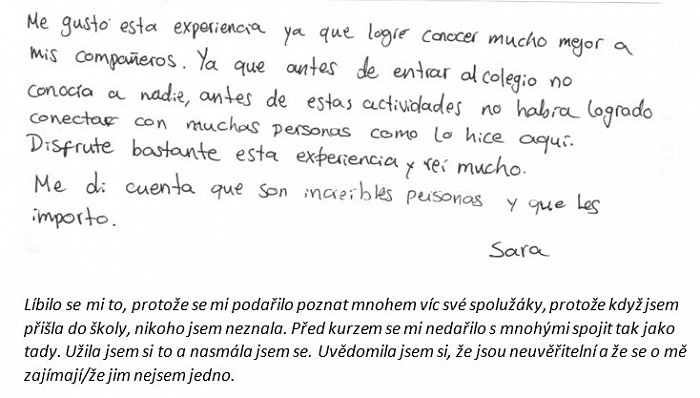 Me gustó esta experiencia ya que logre conocer mucho mejor a
mis compañeros. Ya que antes de entrar al colegio no
conocía a nadie, antes de estas actividades no habra logrado
conectar con muchas personas como lo hice aquí.
Disfrute bastante esta experiencia y reí mucho.
Me di cuenta que son increíbles personas y que les
importo.
Sara
Líbilo se mi to, protože se mi podařilo poznat mnohem víc své spolužáky, protože když jsem
přišla do školy, nikoho jsem neznala. Před kurzem se mi nedařilo s mnohými spojit tak jako
tady. Užila jsem si to a nasmála jsem se. Uvědomila jsem si, že jsou neuvěřitelní a že se o mě
zajímají/že jim nejsem jedno.